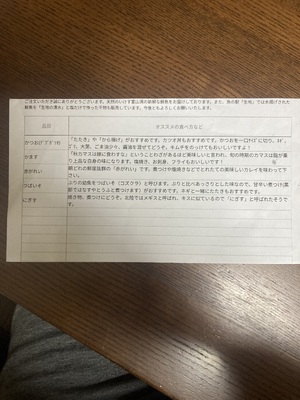 ご注文いただき誠にありがとうございます。天然のいけす富山湾の新鮮な鮮魚をお届けしております。また、魚の駅「生地」では水揚げされた
鮮魚を「生地の清水」と塩だけで作った干物も販売しています。今後ともよろしくお願いいたします。
品目
オススメの食べ方など
かつお
「たたき」や「から揚げ」がおすすめです。カツオ丼もおすすめです。かつおを一口サイズに切り、ネギ、
大葉、ごま油少々、醤油を混ぜてどうぞ。キムチをのっけてもおいしいですよ！
かます
「秋のカマスは嫁に食わすな」ということわざがあるほど美味しいと言われ、旬の時期のカマスは脂が乗
り上品な白身の味になります。塩焼き、お刺身、フライもおいしいです！
赤がれい
朝どれの鮮度抜群の「赤がれい」です。煮つけや塩焼きなどでとれたての美味しいカレイを味わって下さい。
つばいそ
ぶりの幼魚をつばいそ（コズクラ）と呼びます。ぶりと比べあっさりとした味なので、甘辛い煮つけ(薬
味ではなすやとうふと煮つけます）がおすすめです。ネギと一緒にたたきもおすすめです。
にぎす
焼き物、煮つけにどうぞ。北陸ではメギスと呼ばれ、キスに似ているので「にぎす」と呼ばれたそうで
す。